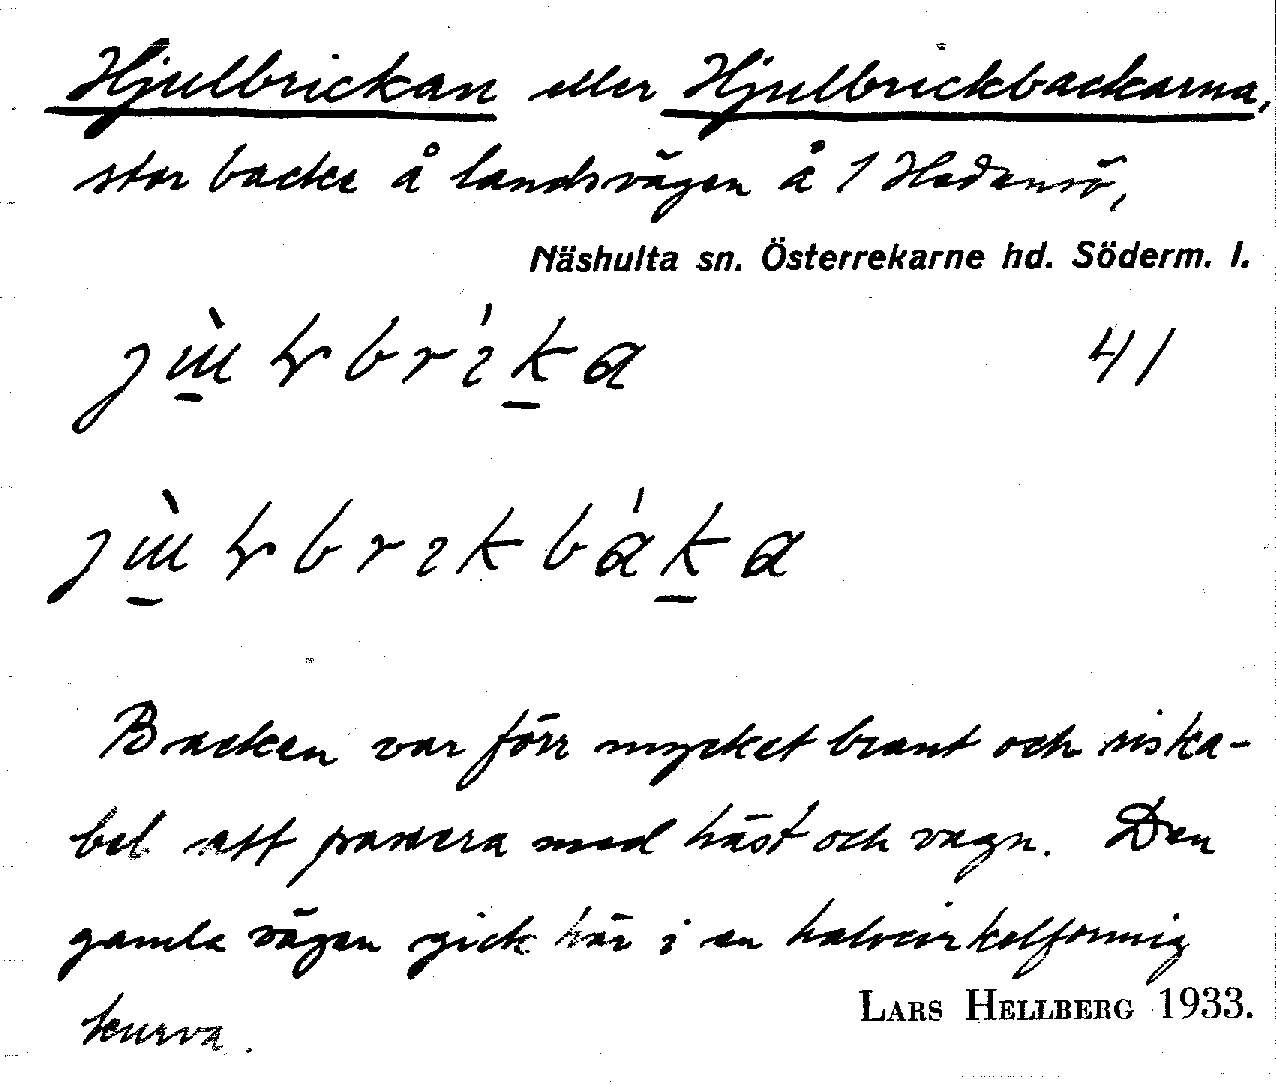 Hjulbrickan eller Hjulbrickbackarna,
stor backe å landsvägen å 1 Hedensö,
Näshulta sn. Österrekarne hd. Söderm. l.
41
Backen var förr mycket brant och riska-
bel att passera med häst och vagn. Den
gamla vägen gick här i en halvcirkelformig
kurva.
LARS HELLBERG 1933.